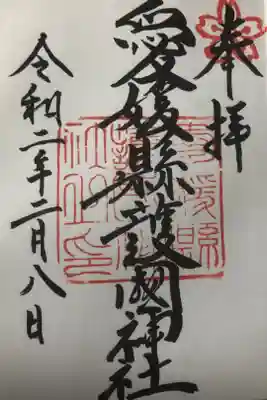 奉拝
愛媛縣護國神社
令和二年二月八日